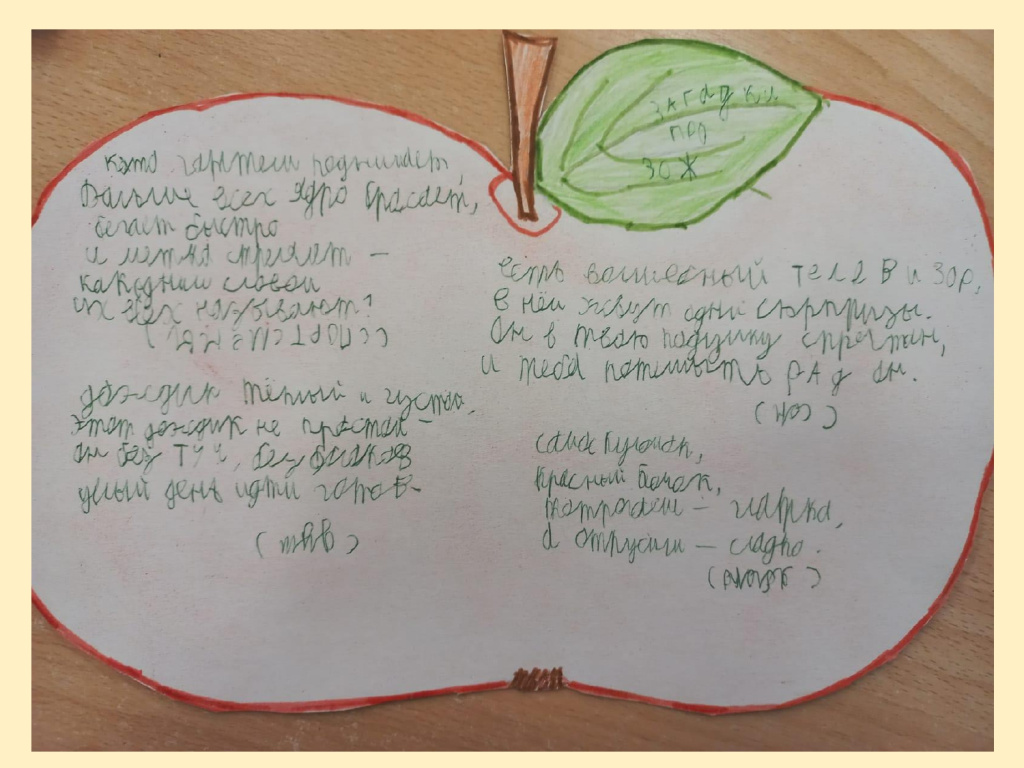 ЗАГАДКИ
ПРО
ЗОЖ
кто гантели поднимает,
Дальше всех Ядро бросает,
бегает быстро
и метко стреляет –
как одним словом
их всех называют?
(СПОРТСМЕНЫ)
дождик тёплый и густой.
Этот дождик не простой –
он без ТУЧ, без облаков
целый день идти готов.
(душ)
есть волшебный ТЕЛЕВИЗОР,
в нём живут одни сюрпризы.
Он в твою подушку спрятан,
и тебя потешить РАД он.
(сон)
сама кулачок,
красный бочок,
потрогаеш – гладко,
а откусиш – сладко.
(яблоко)